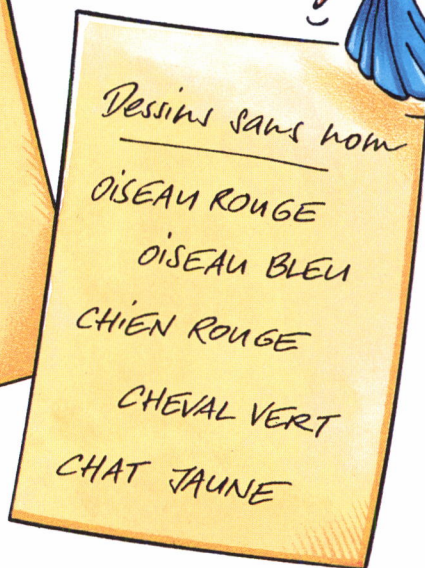 Dessins sans nom
OiSEAU ROUGE
OiSEAU BLEU
CHiEN ROUGE
CHEVAL VERT
CHAT JAUNE